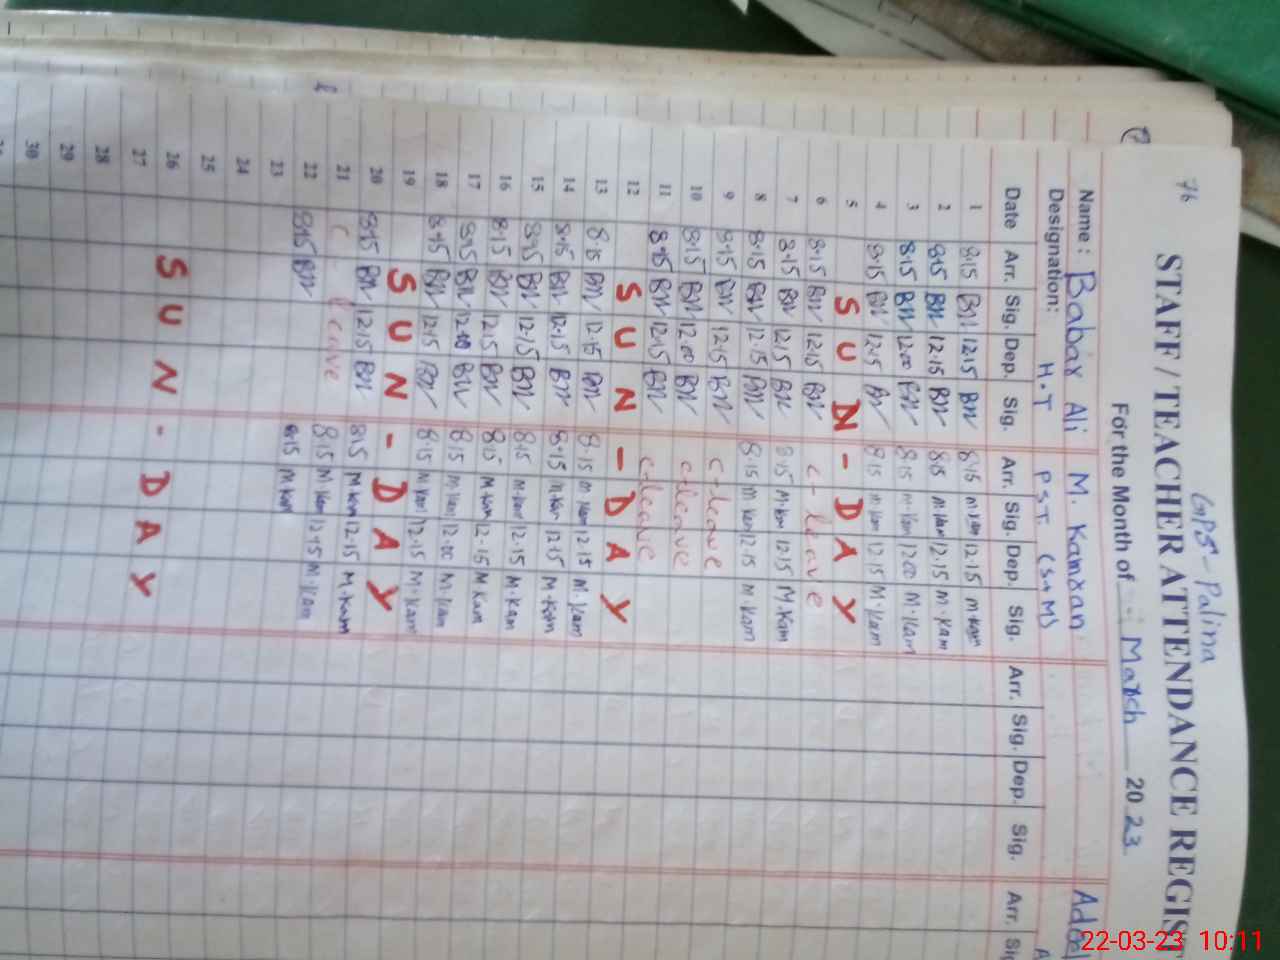 76
GPS - Palina
STAFF / TEACHER ATTENDANCE REGIS
For the Month of March 2023
Name: Babar Ali M. Kamran Adeel
Designation: H.T P.S.T
Date Arr. Sig. Dep. Sig. Arr. Sig. Dep. Sig. Arr. Sig. Dep. Sig. Arr.
1 8.15 BN 12.15 BN 8.15 M.Kam 12.15 M.Kam
2 8.15 BN 12.15 BN 8.15 M.Kam 12.15 M.Kam
3 8.15 BN 12.00 BN 8.15 M.Kam 12.00 M.Kam
4 8.15 BN 12.15 BN 8.15 M.Kam 12.15 M.Kam
5 SUN-DAY
6 8.15 BN 12.15 BN C-leave
7 8.15 BN 12.15 BN 8.15 M.Kam 12.15 M.Kam
8 8.15 BN 12.15 BN 8.15 M.Kam 12.15 M.Kam
9 8.15 BN 12.15 BN C-leave
10 8.15 BN 12.00 BN C-leave
11 8.15 BN 12.15 BN C-leave
12 SUN-DAY
13 8.15 BN 12.15 BN 8.15 M.Kam 12.15 M.Kam
14 8.15 BN 12.15 BN 8.15 M.Kam 12.15 M.Kam
15 8.15 BN 12.15 BN 8.15 M.Kam 12.15 M.Kam
16 8.15 BN 12.15 BN 8.15 M.Kam 12.15 M.Kam
17 8.15 BN 12.00 BN 8.15 M.Kam 12.00 M.Kam
18 8.15 BN 12.15 BN 8.15 M.Kam 12.15 M.Kam
19 SUN-DAY
20 8.15 BN 12.15 BN 8.15 M.Kam 12.15 M.Kam
21 C Leave 8.15 M.Kam 12.15 M.Kam
22 8.15 BN 8.15 M.Kam
23
24
25
26 SUN-DAY
27
28
29
30
22-03-23 10:11